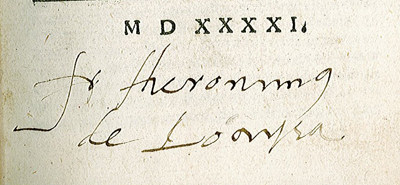 M D XXXXI.
fr. Hieronimus
de Loaysa